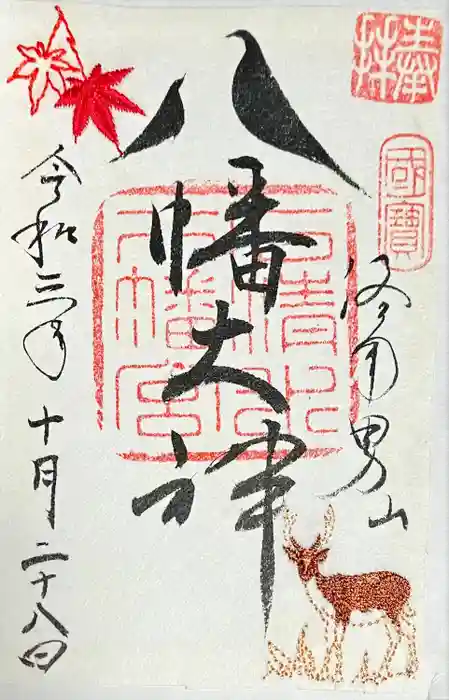 奉拝
國寶
洛南男山
八幡大神
石清水
八幡宮
令和三年 十月二十八日